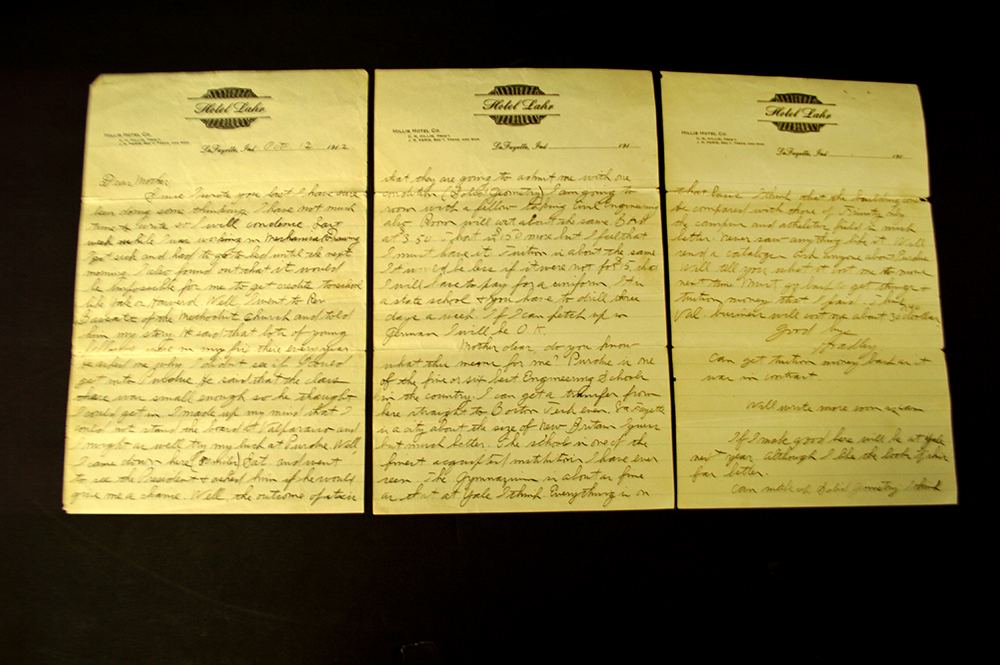 Hotel Lahr
HILLIS HOTEL CO.
LaFayette, Ind. Oct 12 1912
Dear Mother
Since I wrote you last I have sure
been doing some thinking. I have not much
time to write so I will condence.
week while I was working on Mechanical Drawing
got sick and had to go to bed until the next
morning. I also found out that it would
be impossible for me to get credits to school
like Yale or Harvard. Well I went to Rev
of the Methodist Church and told
him my story. He said that lots of young
he asked me why I didn't see if I could
get into Purdue. He said that the class
there was small enough so he thought
I could get in. I made up my mind that I
could not stand the board at Valparaiso and
might as well try my luck at Purdue. Well
I came down here Sat. and went
to see the President & asked him if he would
give me a chance. Well, the outcome of it is
Hotel Lahr
HILLIS HOTEL CO.
LaFayette, Ind. 191
that they are going to admit me with one
condition (Solid Geometry) I am going to
room with a fellow taking Civil Engineering
also. Room will cost about the same. Board
at 3.50. that is 1.50 more but I feel that
I must have it. Tuition is about the same
It would be less if it were not for $15 that
I will have to pay for a uniform. It is
a state school & you have to drill three
days a week. If I can fetch up in
German I will be O.K.
Mother dear, do you know
what this means for me? Purdue is one
of the five or six best Engineering Schools
in the country. I can get a transfer from
here straight to Boston Tech even. La Fayette
is a city about the size of New Britain I guess
but much better. The school is one of the
finest acquipted institution I have ever
seen. The Gymnasium is about as fine
as that at Yale I think. Everything is on
Hotel Lahr
HILLIS HOTEL CO.
LaFayette, Ind. 191
that basis. I think that the buildings can
be compared with those of Trinity only
the campus and athletic field is much
better. Never saw anything like it. Will
send a catalogue. Ask anyone about Purdue
Will tell you what it cost me to move
next time. Must go back & get things &
tuition money that I paid.
Val. business will cost me about 30 dollars
Good bye
Bradley.
Can get tuition money back as it
was in contract
Will write more soon again
If I make good here will be at Yale
next year although I like the looks of this
far better.
Can make up Solid Geometry I think